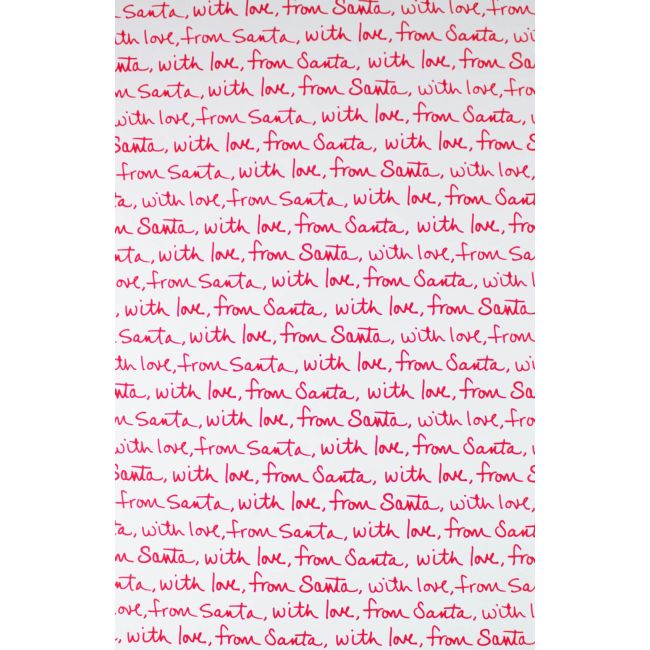 Santa, with love, from Santa, with love, from
th love, from Santa, with love, from Santa, w
nta, with love, from Santa, with love, from S
m Santa, with love, from Santa, with love, fro
with love, from Santa, with love, from Santa, w
Santa, with love, from Santa, with love, from S
from Santa, with love, from Santa, with love,
ta, with love, from Santa, with love, from Sant
m Santa, with love, from Santa, with love, fro
nta, with love, from Santa, with love, from Sa
ove, from Santa, with love, from Santa, with l
, with love, from Santa, with love, from Santa
Santa, with love, from Santa, with love, from
th love, from Santa, with love, from Santa, wi
nta, with love, from Santa, with love, from S
m Santa, with love, from Santa, with love, fro
with love, from Santa, with love, from Santa, w
Santa, with love, from Santa, with love, from S
from Santa, with love, from Santa, with love,
ta, with love, from Santa, with love, from Sant
m Santa, with love, from Santa, with love, fro
nta, with love, from Santa, with love, from Sa
ove, from Santa, with love, from Santa, with l
, with love, from Santa, with love, from Santa